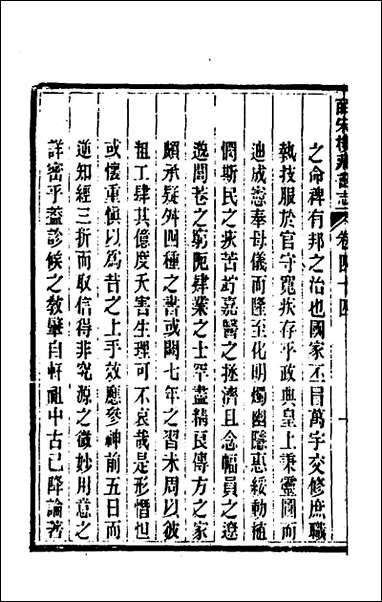 皕宋樓藏書志 卷四十四
之命稗有邦之治也國家丕冒萬宇交修庶職
執技服於官守寬疾存乎政典皇上秉靈圖而
迪成憲奉母儀而隆至化明燭幽隱惠綏動植
憫斯民之疾苦竚嘉醫之拯濟且念幅員之遼
邈閭巷之窮阨肆業之士罕盡精良傳方之家
頗承疑舛四種之書或闕七年之習未周以彼
粗工肆其億度夭害生理可不哀哉是形憯怛
或懷重愼以爲昔之上手效應參神前五日而
逆知經三折而取信得非究源之微妙用意之
詳密乎蓋診候之敎肇自軒祖中古已降論著